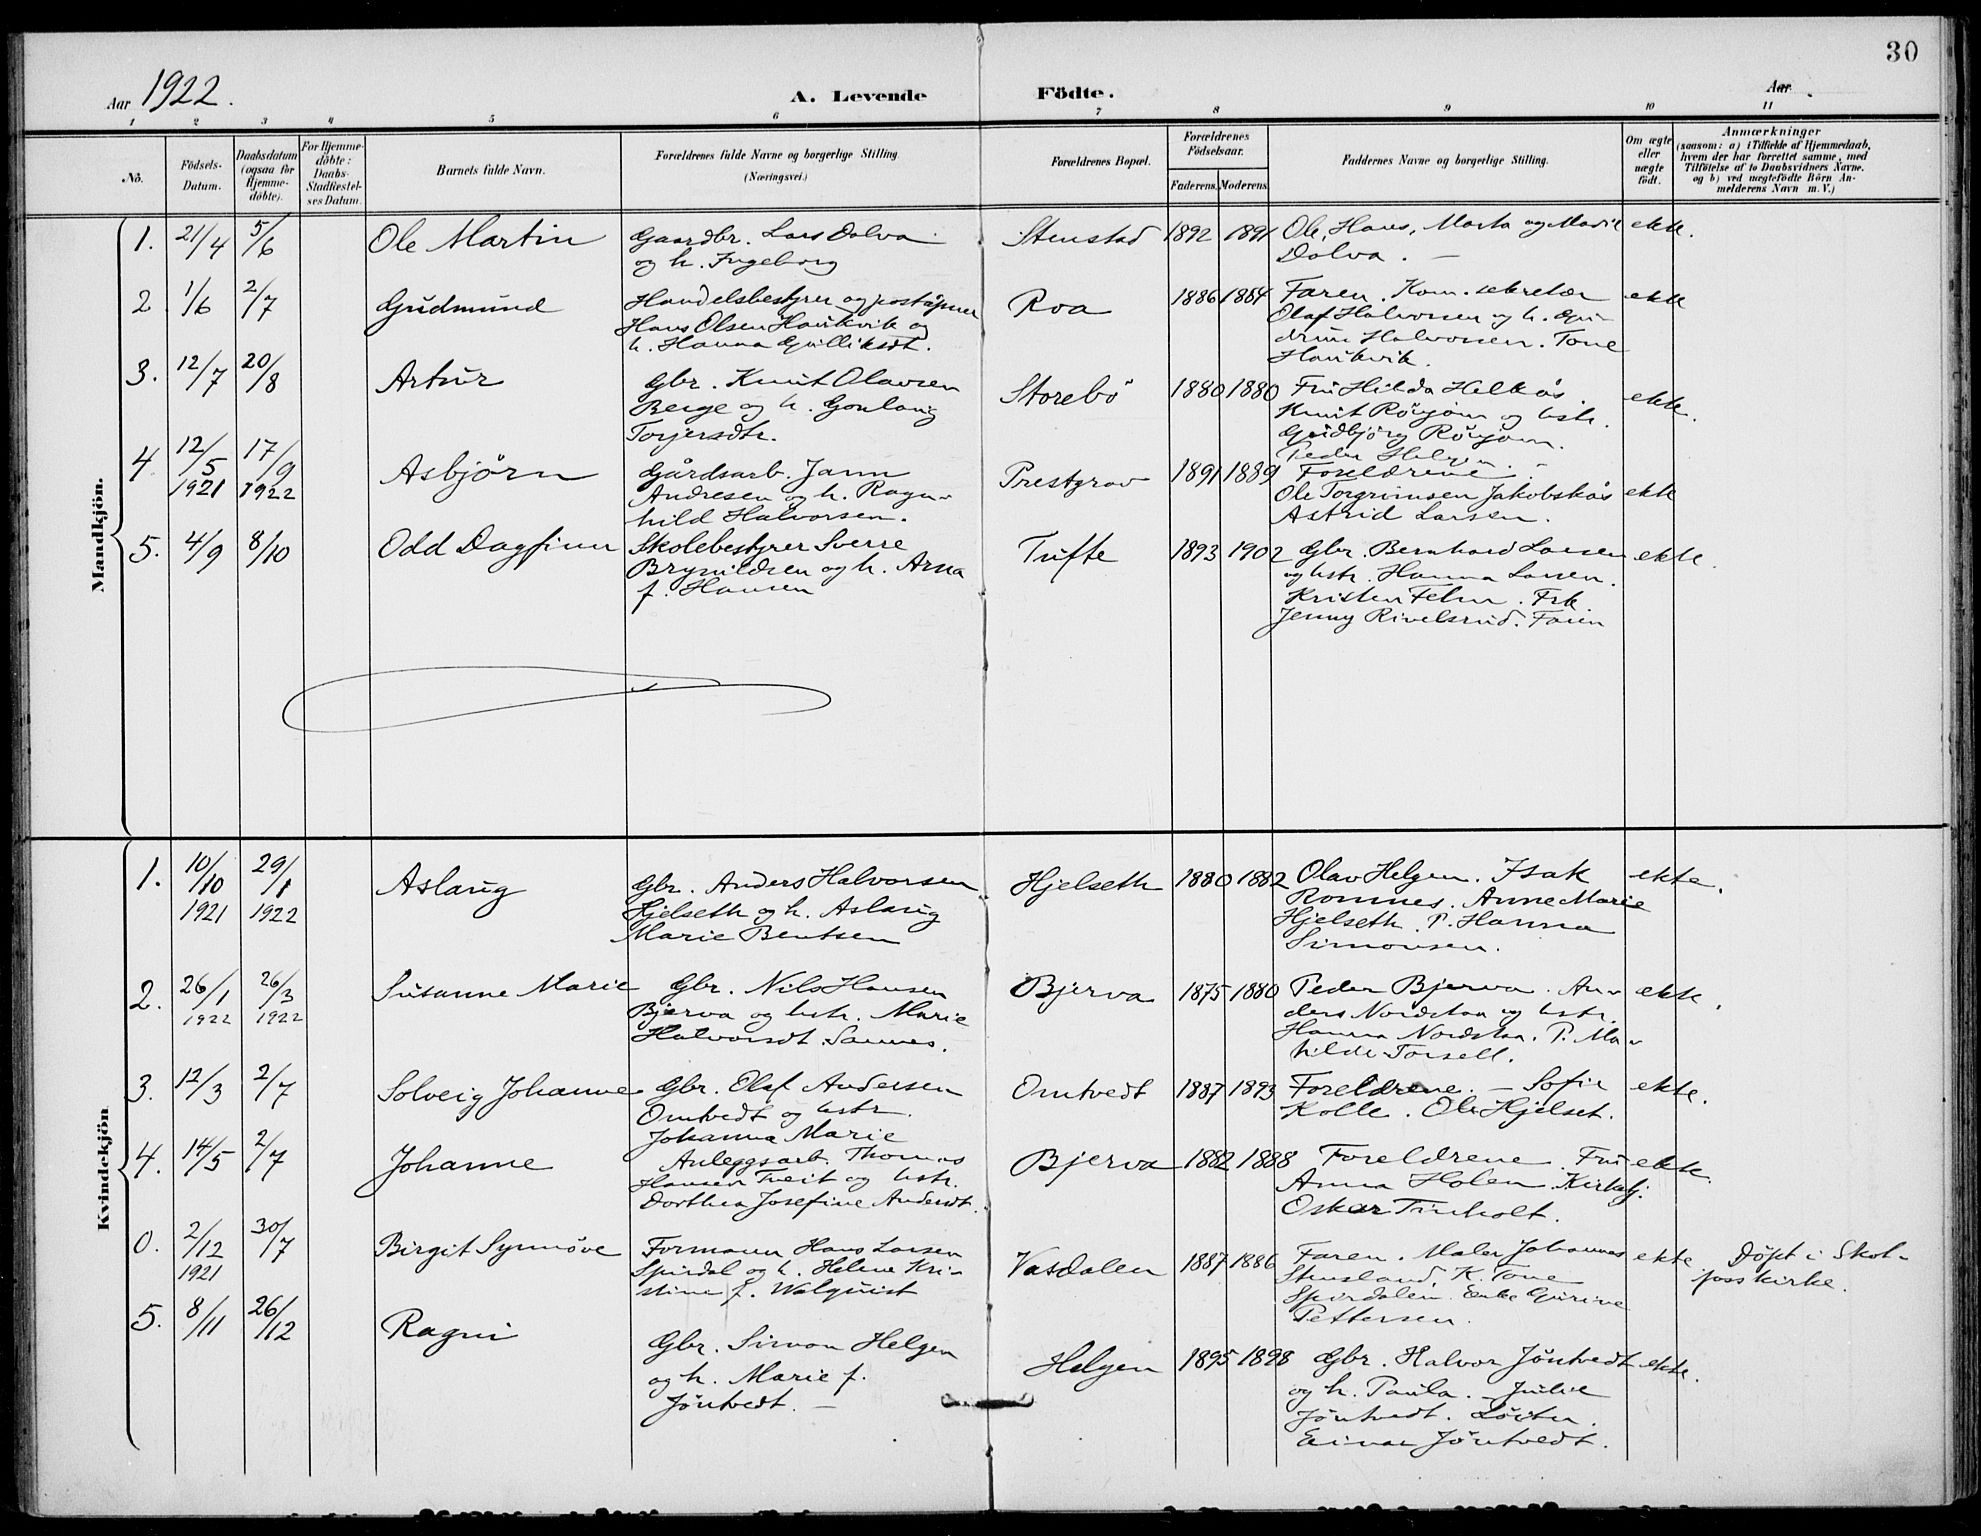 30
Aar 1922.
A. Levende Födte.
Aar
1 2 3 4 5 6 7 8 9 10 11
No.
Födsels-
Datum.
Daabsdatum
(ogsaa for
Hjemme-
döbte).
For Hjemme-
döbte:
Daabs-
Stadfæstel-
ses Datum.
Barnets fulde Navn.
Forældrenes fulde Navne og borgerlige Stilling
(Næringsvei.)
Forældrenes Bopæl.
Forældrenes
Födselsaar.
Faderens. Moderens.
Faddernes Navne og borgerlige Stilling.
Om ægte
eller
uægte
födt.
Anmærkninger
(saasom: a) i Tilfælde af Hjemmedaab,
hvem der har forrettet samme, med
Tilföielse af to Daabsvidners Navne,
og b) ved uægtefödte Börn An-
melderens Navn m. V.)
Mandkjön.
1. 21/4 5/6 Ole Martin
Gaardbr. Lars Dalva
og h. Ingeborg
Stenstad 1892 1891
Ole, Hans, Marta og
Dalva. —
ekte.
2 1/6 2/7 Gudmund
Handelsbestyrer og poståpner
Hans Olsen Haukvik og
h. Hanna Gulliksdt.
Roa 1886 1884
Faren. Kom. sekretær
Olaf Halvorsen og h. Gu-
drun Halvorsen. Tone
Haukvik.
ekte
3. 12/7 20/8 Artur
Gbr. Knut Olavsen
Berge og h. Gonlaug
Torjersdtr.
Storebö 1880 1880
Fru Hilda Helkås.
Knut Röysjom og hstr.
Gudbjörg Röysjom.
Peder Helgen.
ekte.
4. 12/5 1921 17/9 1922 Asbjörn
Gårdsarb. Jann
Andresen og h. Ragn-
hild Halvorsen.
Prestgrav 1891 1889
Foreldrene.
Ole Torgrimsen Jakobskås
Astrid Larsen.
ekte
5. 4/9 8/10 Odd Dagfinn
Skolebestyrer Sverre
Brynildsen og h. Arna
f. Hansen
Tufte 1893 1902
Gbr. Bernhard Larsen
og hstr. Hanna Larsen.
Kristen Felm. Frk.
Jenny Rivelsrud. Faren
ekte.
Kvindekjön.
1. 10/10 1921 29/1 1922 Aslaug
Gbr. Anders Halvorsen
Hjelseth og h. Aslaug
Marie Bentsen
Hjelseth 1880 1882
Olav Helgen. Isak
Romnes. Anne Marie
Hjelseth. P. Hanna
Simonsen.
ekte.
2. 26/1 1922 26/3 1922 Susanne Marie
Gbr. Nils Hansen
Bjerva og hstr. Marie
Halvorsdt. Sannes.
Bjerva 1875 1880
Peder Bjerva. An-
ders Nordstaa og hstr.
Hanna Nordstaa. P. Ma-
hilde Torsell.
ekte.
3. 12/3 2/7 Solveig Johanne
Gbr. Olaf Andersen
Omtvedt og hstr.
Johanna Marie
Omtvedt 1887 1893
Foreldrene. — Sofie
Kolle. Ole Hjelset.
ekte.
4. 14/5 2/7 Johanne
Anleggsarb. Thomas
Hansen Tveit og hstr.
Dorthea Josefine Andersdt.
Bjerva 1882 1888
Foreldrene. Fru
Anna Holen. Kirkesj.
Oskar Tinholt.
ekte.
0. 2/12 1921 30/7 Birgit Synnöve
Formann Hans Larsen
Spirdal og h. Helene Kri-
stine f. Walquist
Vasdalen 1887 1886
Faren. Maler Johannes
Stensland. K. Tone
Spirdalen. Enke Gurine
Pettersen.
ekte.
Döpt i Skot-
foss kirke.
5. 8/11 26/12 Ragni
Gbr. Simon Helgen
og h. Marie f.
Jöntvedt. —
Helgen 1895 1898
Gbr. Halvor Jöntvedt
og h. Paula. — Julie
Jöntvedt.
Einar Jöntvedt.
ekte.